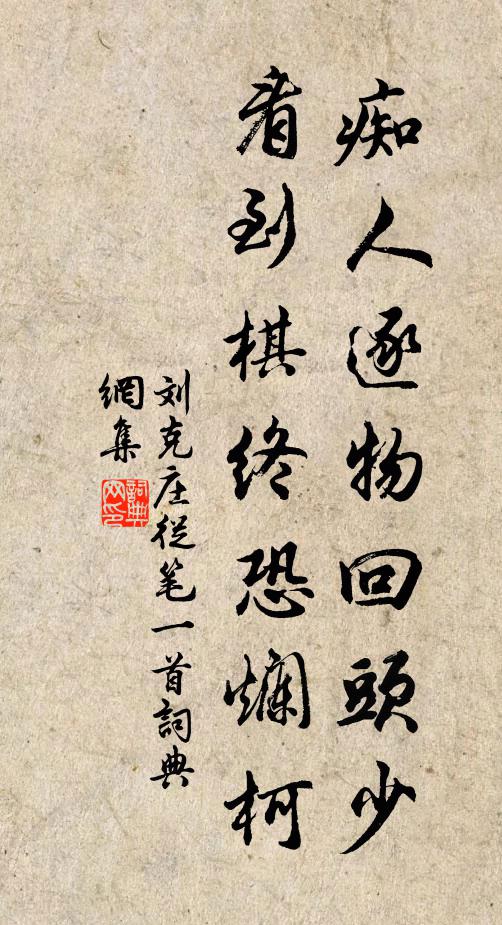 痴人逐物回頭少
看到棋終恐爛柯
刘克庄従笔一首詞典
網集
詞典
网印